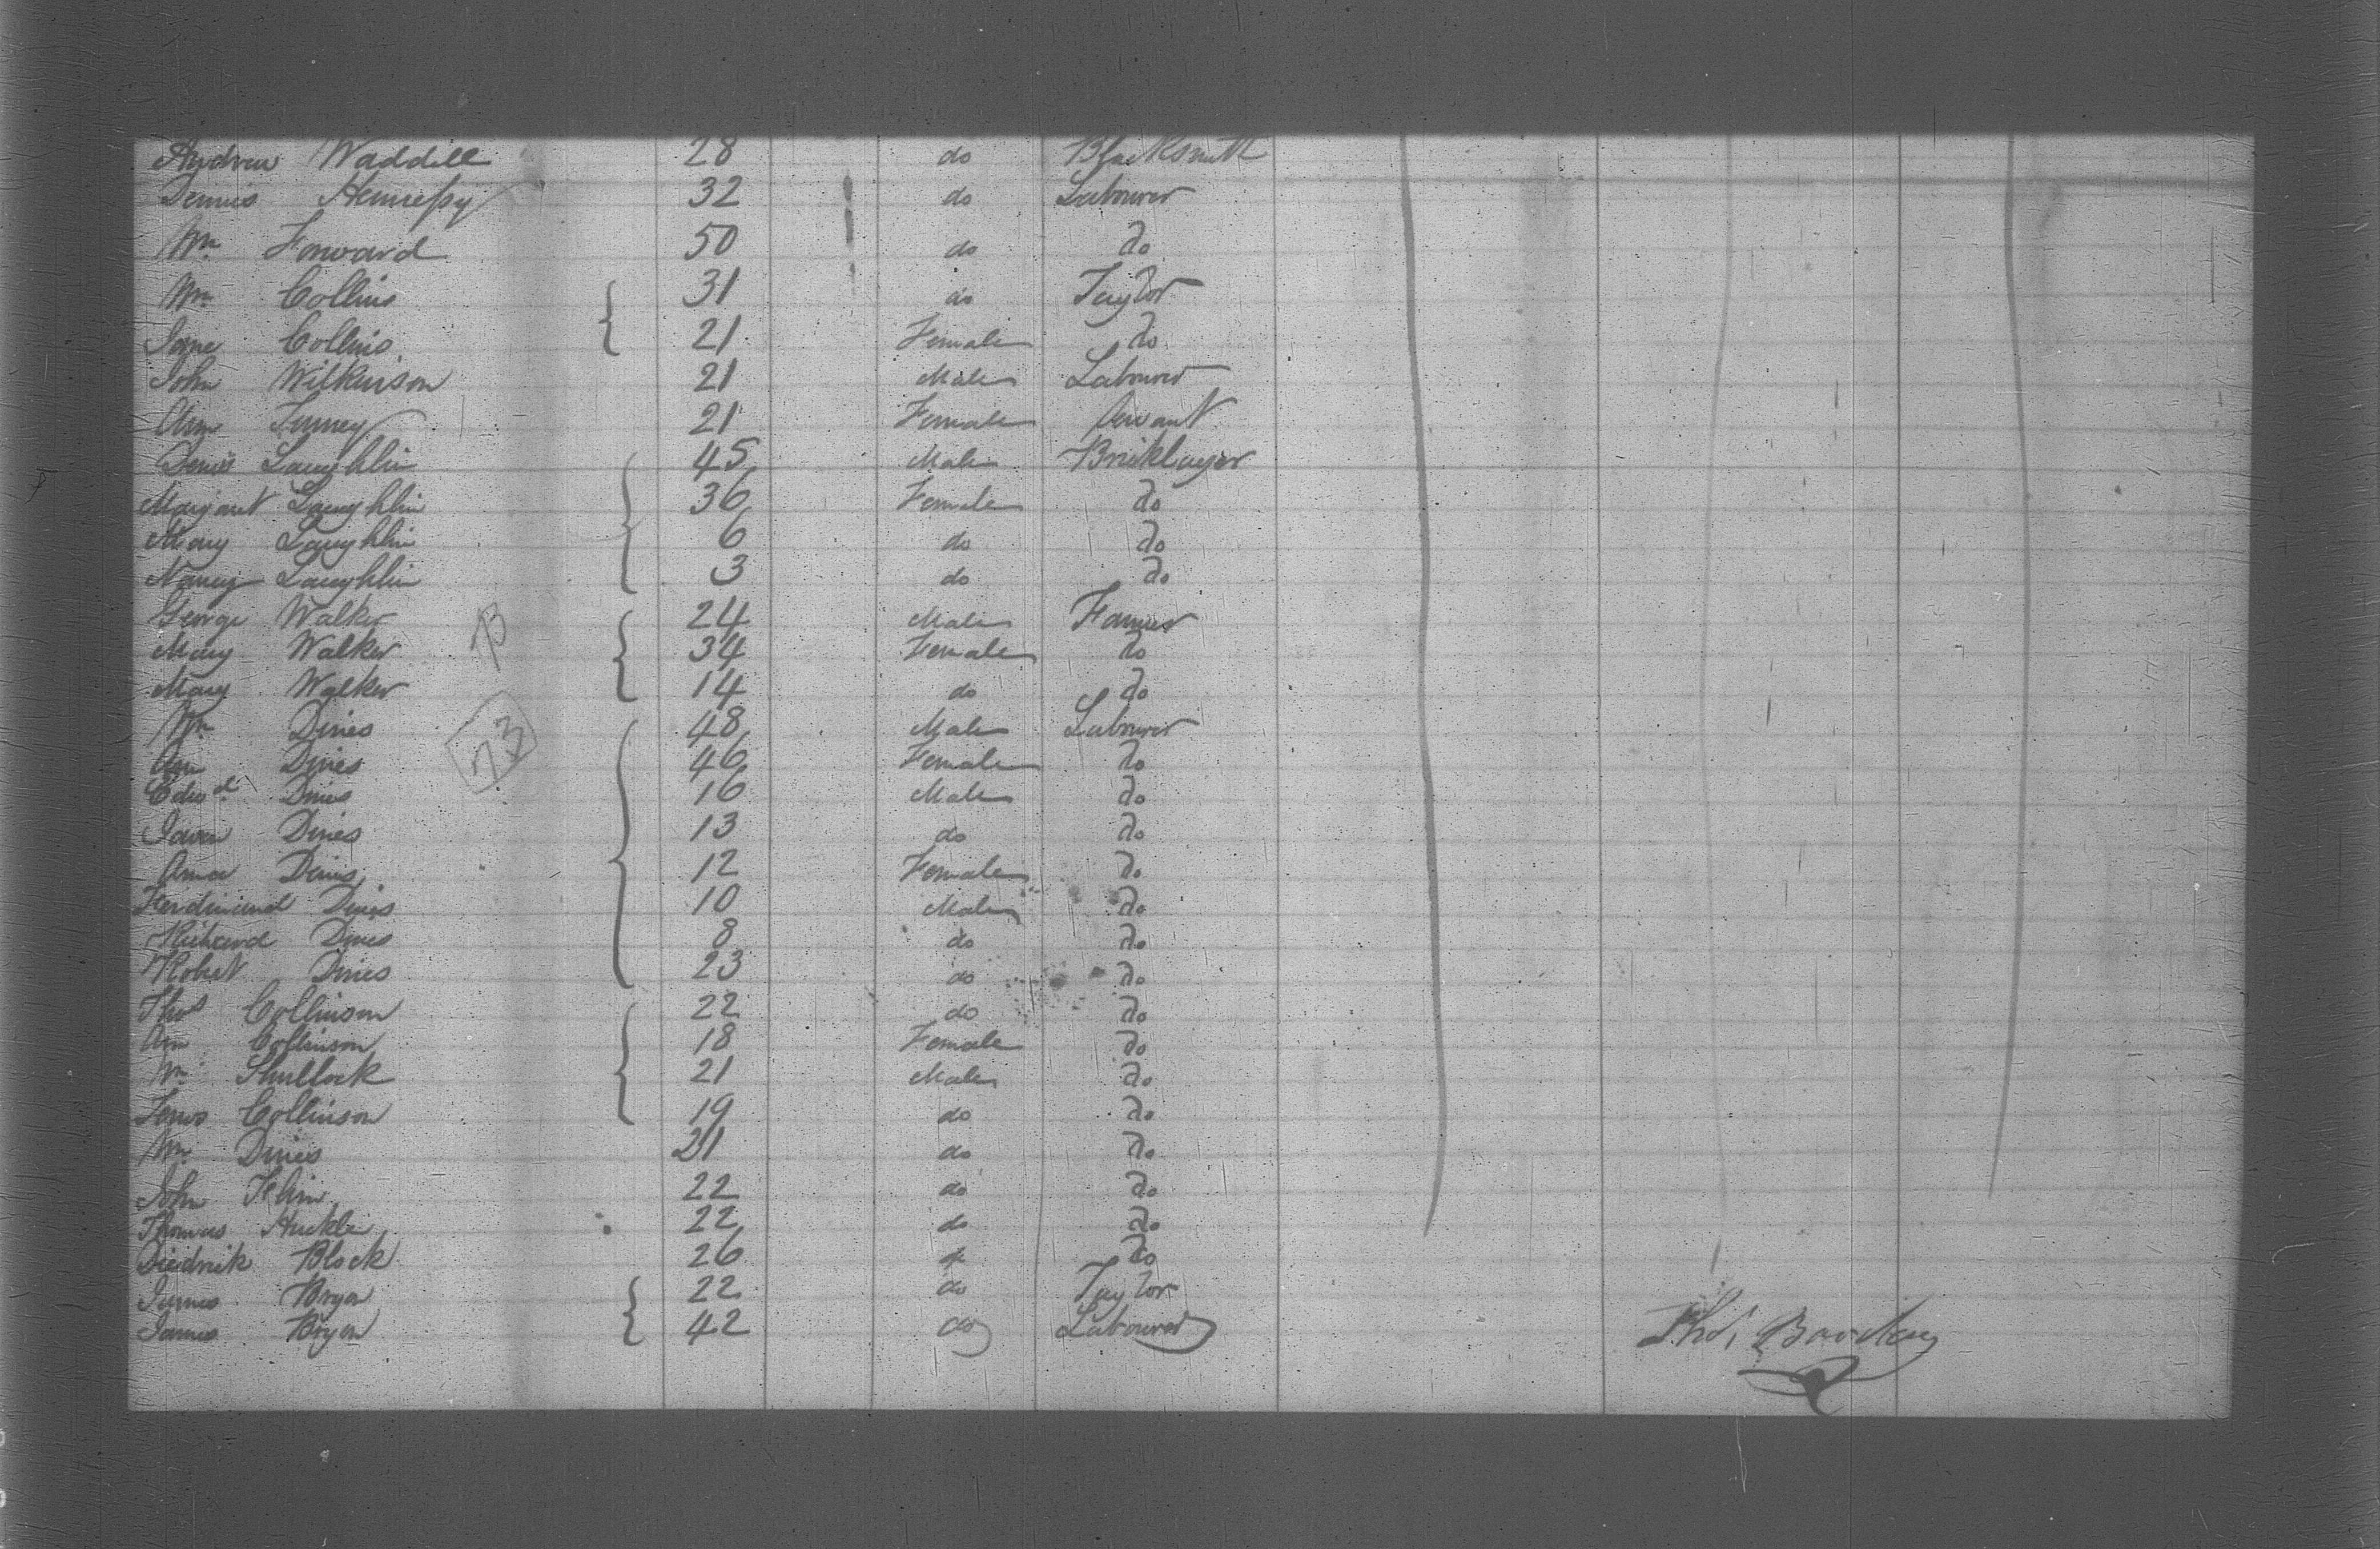 Andrew Waddell 28 do Blacksmith
Dennis Hennessy 32 do Labourer
Wm Forward 50 do do
Wm Collins 31 do Taylor
Jane Collins 21 Female do
John Wilkinson 21 Male Labourer
Ann Finney 21 Female Servant
Dennis Laughlin 45 Male Bricklayer
Margaret Laughlin 36 Female do
Mary Laughlin 6 do do
Nancy Laughlin 3 do do
George Walker 24 Male Farmer
Mary Walker 34 Female do
Mary Walker 14 do do
Wm Dines 48 Male Labourer
73
Ann Dines 46 Female do
Edwd Dines 16 Male do
Dines 13 do do
Dines 12 Female do
Ferdinand Dines 10 Male do
Richard Dines 8 do do
Robert Dines 23 do do
Thos Collinson 22 do do
Ann Collinson 18 Female do
Wm 21 Male do
Collinson 19 do do
Wm Dines 21 do do
John 22 do do
Thomas Huckle 22 do do
Diedrik Block 26 do do
James Bryan 22 do Taylor
James Bryan 42 do Labourer
Thos Barclay